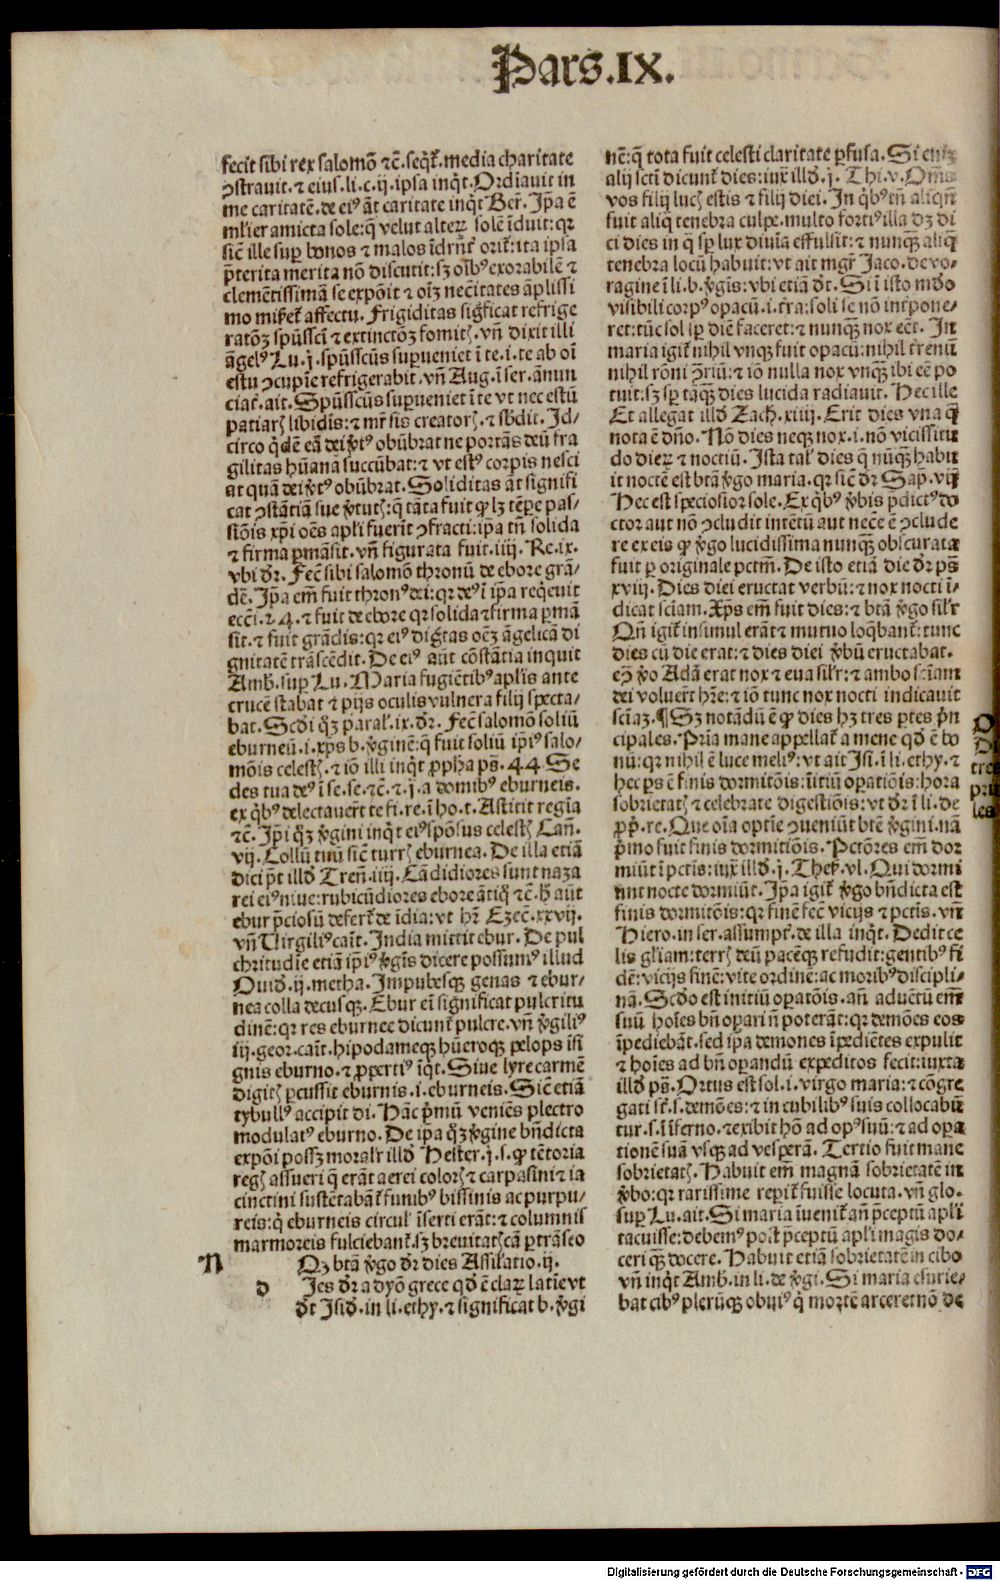 Pars.IX.
fecit sibi rex salomō ⁊c̄. seq̄t̄. media charitate
ꝯstravit. ⁊ eius. li. c. ij. ipsa inq̇t. Ordīauit in
me caritatē. de ei⁹ āt caritate inq̇t Ber̄. Ip̄a ē
ml'ier amicta sole: q̄ velut alteꝝ solē īduit: qꝛ
sic̄ ille suꝑ bonos ⁊ malos īdr̄n̄t orit̄: ita ipsa
p̄terita merita nō discutit: sꝫ oīb⁹ exorabilē ⁊
clemētissimā se expōit ⁊ oīꝫ nec̄itates āplissi
mo mis̄et̄ affectu. Frigiditas sig̅ficat refrige
ratōꝫ sp̄ussc̄i ⁊ extinctōꝫ fomitꝭ. vn̄ dixit illi
āgel⁹ Lu. j. sp̄ussc̄us suꝑueniet ī te. i. te ab oī
estu ꝯcupīe refrigerabit. vn̄ Aug. ī ser. ānun
ciat̄. ait. Sp̄ussc̄us suꝑueniet ī te vt nec estū
patiarꝭ libidis: ⁊ mr̄ sis creatorꝭ. ⁊ sb̄dit. Id/
circo q̇dē eā dei v̄t⁹ obūbrat ne portās deū fra
gilitas hūanā succūbat: ⁊ vt est⁹ corpis nesci
at quā dei v̄t⁹ obūbrat. Soliditas āt signifi
cat ꝯstātiā sue v̄tutꝭ: q̄ tāta fuit ꝙ lꝫ tēp̄e pas/
siōis xp̄i oēs apl̄i fuerīt ꝯfracti: ip̄a tn̄ solida
⁊ firma ꝑmāsit. vn̄ figurata fuit. iiij. Re. ix.
vbi dr̄. Fec̄ sibi salomō thronū de ebore grā/
dē. Ip̄a em̄ fuit thron⁹ dei: qꝛ de⁹ ī ip̄a req̇euit
ecc̄i. 24. ⁊ fuit de ebore qꝛ solida ⁊ firma ꝑmā
sit. ⁊ fuit grādis: qꝛ ei⁹ dig̅tas oēꝫ āgelicā di
gnitatē trāscēdit. De ei⁹ aūt cōstātia inquit
Amb. suꝑ Lu. Maria fugiētib⁹ aplis ante
crucē stabat ⁊ pijs oculis vulnera filij specta/
bat. Sc̄di q̄ꝫ paral'. ix. dr̄. Fec̄ salomō soliū
eburneū. i. xp̄s b. v̄ginē: q̄ fuit soliū ip̄i⁹ salo/
mōis celestꝭ. ⁊ iō illi inq̇t ꝓpha ps̄. 44. Se
des tua de⁹ ī se. se. ⁊c̄. ⁊ j. a domib⁹ eburneis.
ex q̇b⁹ delectauer̄t te fi. re. ī ho. t. Astitit regīa
⁊c̄. Ip̄i q̄ꝫ v̄gini inq̇t ei⁹ spōsus celestꝭ Can̄.
vij. Collū tuū sic̄ turrꝭ eburnea. De illa etiā
dici p̄t illd̄ Tren̄. iiij. Cādidiores sunt naza
rei ei⁹ niue: rubicūdiores ebore ātiq̇ ⁊c̄. h̄ aūt
ebur p̄ciosū defert̄ de īdia: vt hr̄ Ezec̄. xxvij.
vn̄ Virgili⁹ cait̄. India mittit ebur. De pul
chritudīe etiā ip̄i⁹ v̄gīs dicere possum⁹ illud
Ouid. ij. metha. Impubesqꝫ genas ⁊ ebur/
nea colla decusqꝫ. Ebur ei̅ significat pulcritu
dinē: qꝛ res eburnee dicunt̄ pulcre. vn̄ v̄gili⁹
iij. geor. cait̄. hipodameqꝫ hūeroqꝫ pelops īsi
gnis eburno. ⁊ ꝓperti⁹ īq̇t. Siue lyre carmē
digitꝭ ꝑcussit eburnis. i. eburneis. Sic̄ etiā
tybull⁹ accipit di. Hāc p̄mū veniēs plectro
modulat⁹ eburno. De ip̄a q̄ꝫ v̄gine bn̄dicta
expōi possꝫ moral'r illd̄ Hester. j. s. ꝙ tētoria
regꝭ assueri q̄ erāt aerei colorꝭ ⁊ carpasini ⁊ ia
cinctini sustētabāt̄ funib⁹ bissinis ac purpu/
reis: q̇ eburneis circul' īserti erāt: ⁊ columnis
marmoreis fulciebant̄. sꝫ breuitatꝭ cā ꝑtrāseo
N
Qꝫ btā v̄go dr̄ dies Assil'atio. ij.
d
Ies dr̄ a dyō grece qd̄ ē claꝝ latīe vt
dt̄ Isid̄. in li. ethy. ⁊ significat b. v̄gi
nē: q̄ tota fuit celesti claritate ꝑfusa. Si eni̅
alij scti dicunt̄ dies: iux̄ illd̄. j. Thi. v. Om̄s
vos filij lucꝭ estis ⁊ filij diei. In q̇b⁹ tn̄ aliqn̄
fuit aliq̄ tenebra culpe. multo forti⁹ illa dꝫ di
ci dies in q̄ sꝑ lux diuīa effulsit: ⁊ nunqꝫ aliq̄
tenebra locū habuit: vt ait mgr̄ Jaco. de vo/
ragine ī li. b. v̄gīs: vbi etiā dt̄. Si ī isto mūdo
visibili corp⁹ opacū. i. tr̄a: soli se nō intr̄pone/
ret: tūc sol sꝑ diē faceret: ⁊ nunqꝫ nox eēt. In
maria igit̄ nihil vnqꝫ fuit opacū: nihil tr̄enū
nihil rōni ꝯ̄riū: ⁊ iō nulla nox vnqꝫ ibi eē po
tuit: sꝫ sꝑ tāqꝫ dies lucida radiauit. Hec ille
Et allegat illd̄ Zach̄. xiiij. Erit dies vna q̄
nota ē dn̄o. Nō dies neqꝫ nox. i. nō vicissitu
do dieꝝ ⁊ noctiū. Ista tal' dies q̄ nūqꝫ habu
it noctē est btā v̄go maria. qꝛ sic̄ dr̄ Sap̄. vij.
Hec est speciosior sole. Ex q̇b⁹ v̄bis p̄dict⁹ do
ctor aut nō ꝯcludit intētū aut nec̄e ē ꝯclude
re ex eis ꝙ v̄go lucidissima nunqꝫ obscurata
fuit ꝑ originale pctm̄. De isto etiā die dr̄ ps̄
xviij. Dies diei eructat verbū: ⁊ nox nocti ī/
dicat sciam. Xp̄s em̄ fuit dies: ⁊ btā v̄go sil'r
Qn̄ igit̄ insimul erāt ⁊ mutuo loq̄bant̄: tunc
dies cū die erat: ⁊ dies diei v̄bū eructabat.
ex̄ v̄o Adā erat nox ⁊ eua sil'r: ⁊ ambo sciam
dei voluer̄t hr̄e: ⁊ iō tunc nox nocti indicauit
sciāꝫ. ¶ Sꝫ notādū ē ꝙ dies hꝫ tres ꝑtes p̄n
cipales. Pria mane appellat̄ a mene qd̄ ē bo
nū: qꝛ nihil ē luce meli⁹: vt ait Isi. ī li. ethy. ⁊
hec ꝑs ē finis dormitōis: initiū oꝑatiōis: hora
sobrietatꝭ ⁊ celebrate digestiōis: vt dr̄ ī li. de
ꝓp̄. re. Que oīa optīe ꝯueniūt btē v̄gini. nā
p̄mo fuit finis dormitiōis. Pctōres em̄ dor
miūt ī pctīs: iux̄ illd̄. j. Thes̄. vl. Qui dormi
unt nocte dormiūt. Ip̄a igit̄ v̄go bn̄dicta est
finis dormitōis: qꝛ finē fec̄ vicijs ⁊ pctīs. vn̄
Hiero. in ser. assumpt̄. de illa inq̇t. Dedit ce
lis gl'iam: terrꝭ deū pacēqꝫ refudit: gentib⁹ fi
dē: vicijs finē: vite ordinē: ac morib⁹ discipli/
nā. Sc̄do est initiū oꝑatōis. an̄ aduētū em̄
suū hoīes bn̄ oꝑari n̄ poterāt: qꝛ demōes eos
īpediebāt. sed ip̄a demones īpediētes expulit
⁊ hoīes ad bn̄ oꝑandū expeditos fecit: iuxta
illd̄ ps̄. Ortus est sol. i. virgo maria: ⁊ cōgre
gati st̄. s. demōes: ⁊ in cubilib⁹ suis collocabū
tur. s. īferno. ⁊ exibit hō ad op⁹ suū: ⁊ ad oꝑa
tionē suā vsqꝫ ad vesperā. Tertio fuit mane
sobrietatꝭ. Habuit em̄ magnā sobrietatē in
v̄bo: qꝛ rarissime reꝑit̄ fuisse locuta. vn̄ glo.
suꝑ Lu. ait. Si maria īuenit̄ an̄ p̄ceptū apl̄i
tacuisse: debem⁹ post p̄ceptū apl̄i magis do/
ceri qꝫ docere. Habuit etiā sobrietatē in cibo
vn̄ inq̇t Amb. in li. de v̄gi. Si maria esurie/
bat cib⁹ plerūqꝫ obui⁹ q̇ mortē arceret nō de
tres
pri
les
Digitalisierung gefördert durch die Deutsche Forschungsgemeinschaft - DFG